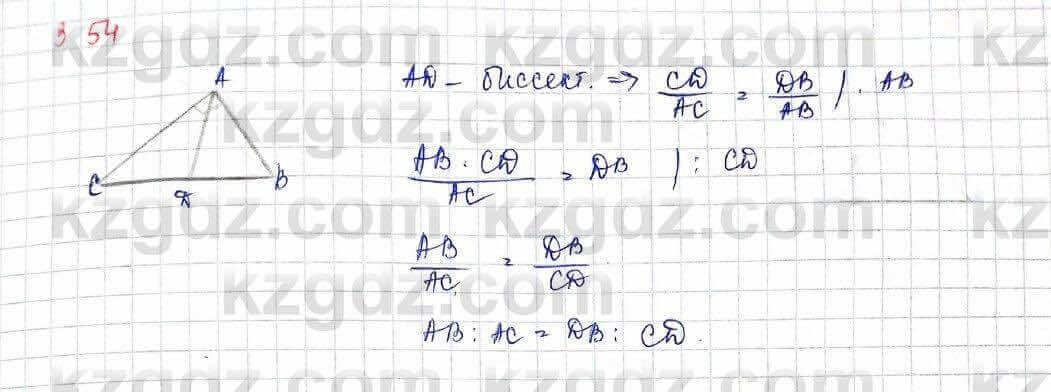 3 54
A
C
B
D
AD - биссект. => CD/AC = DB/AB | · AB
AB · CD/AC = DB | : CD
AB/AC = DB/CD
AB : AC = DB : CD.
kzgdz.com kzgdz.com kz
kzgdz.com kzgdz.com
kzgdz.com kzgdz.com kz
kzgdz.com kzgdz.com